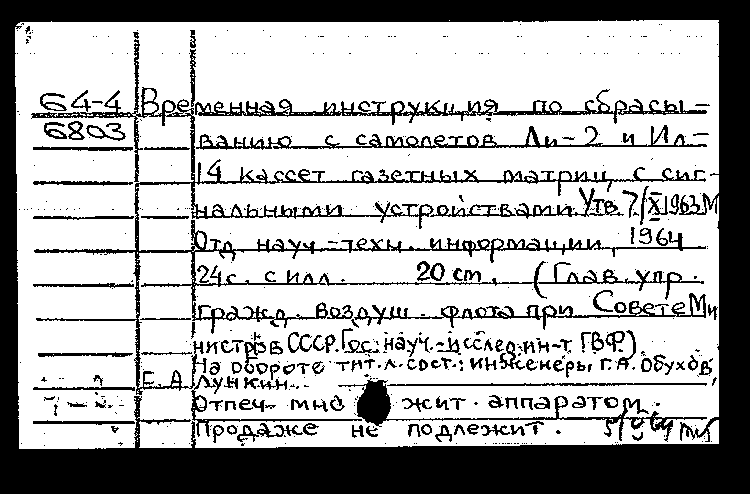 64-4 Временная инструкция по сбрасы-
6803 ванию с самолетов Ли-2 и Ил-
14 кассет газетных матриц с сиг-
нальными устройствами. Утв. 7/X 1963 М
Отд. науч.-техн. информации, 1964
24с. с илл. 20 cm. (Глав. упр.
гражд. воздуш. флота при Совете Ми
нистров СССР. Гос. науч.-исслед. ин-т ГВФ).
На обороте тит. л. сост.: инженеры Г.А. Обухов,
Е.А. Лункин.
Отпеч. мно жит. аппаратом.
Продаже не подлежит.